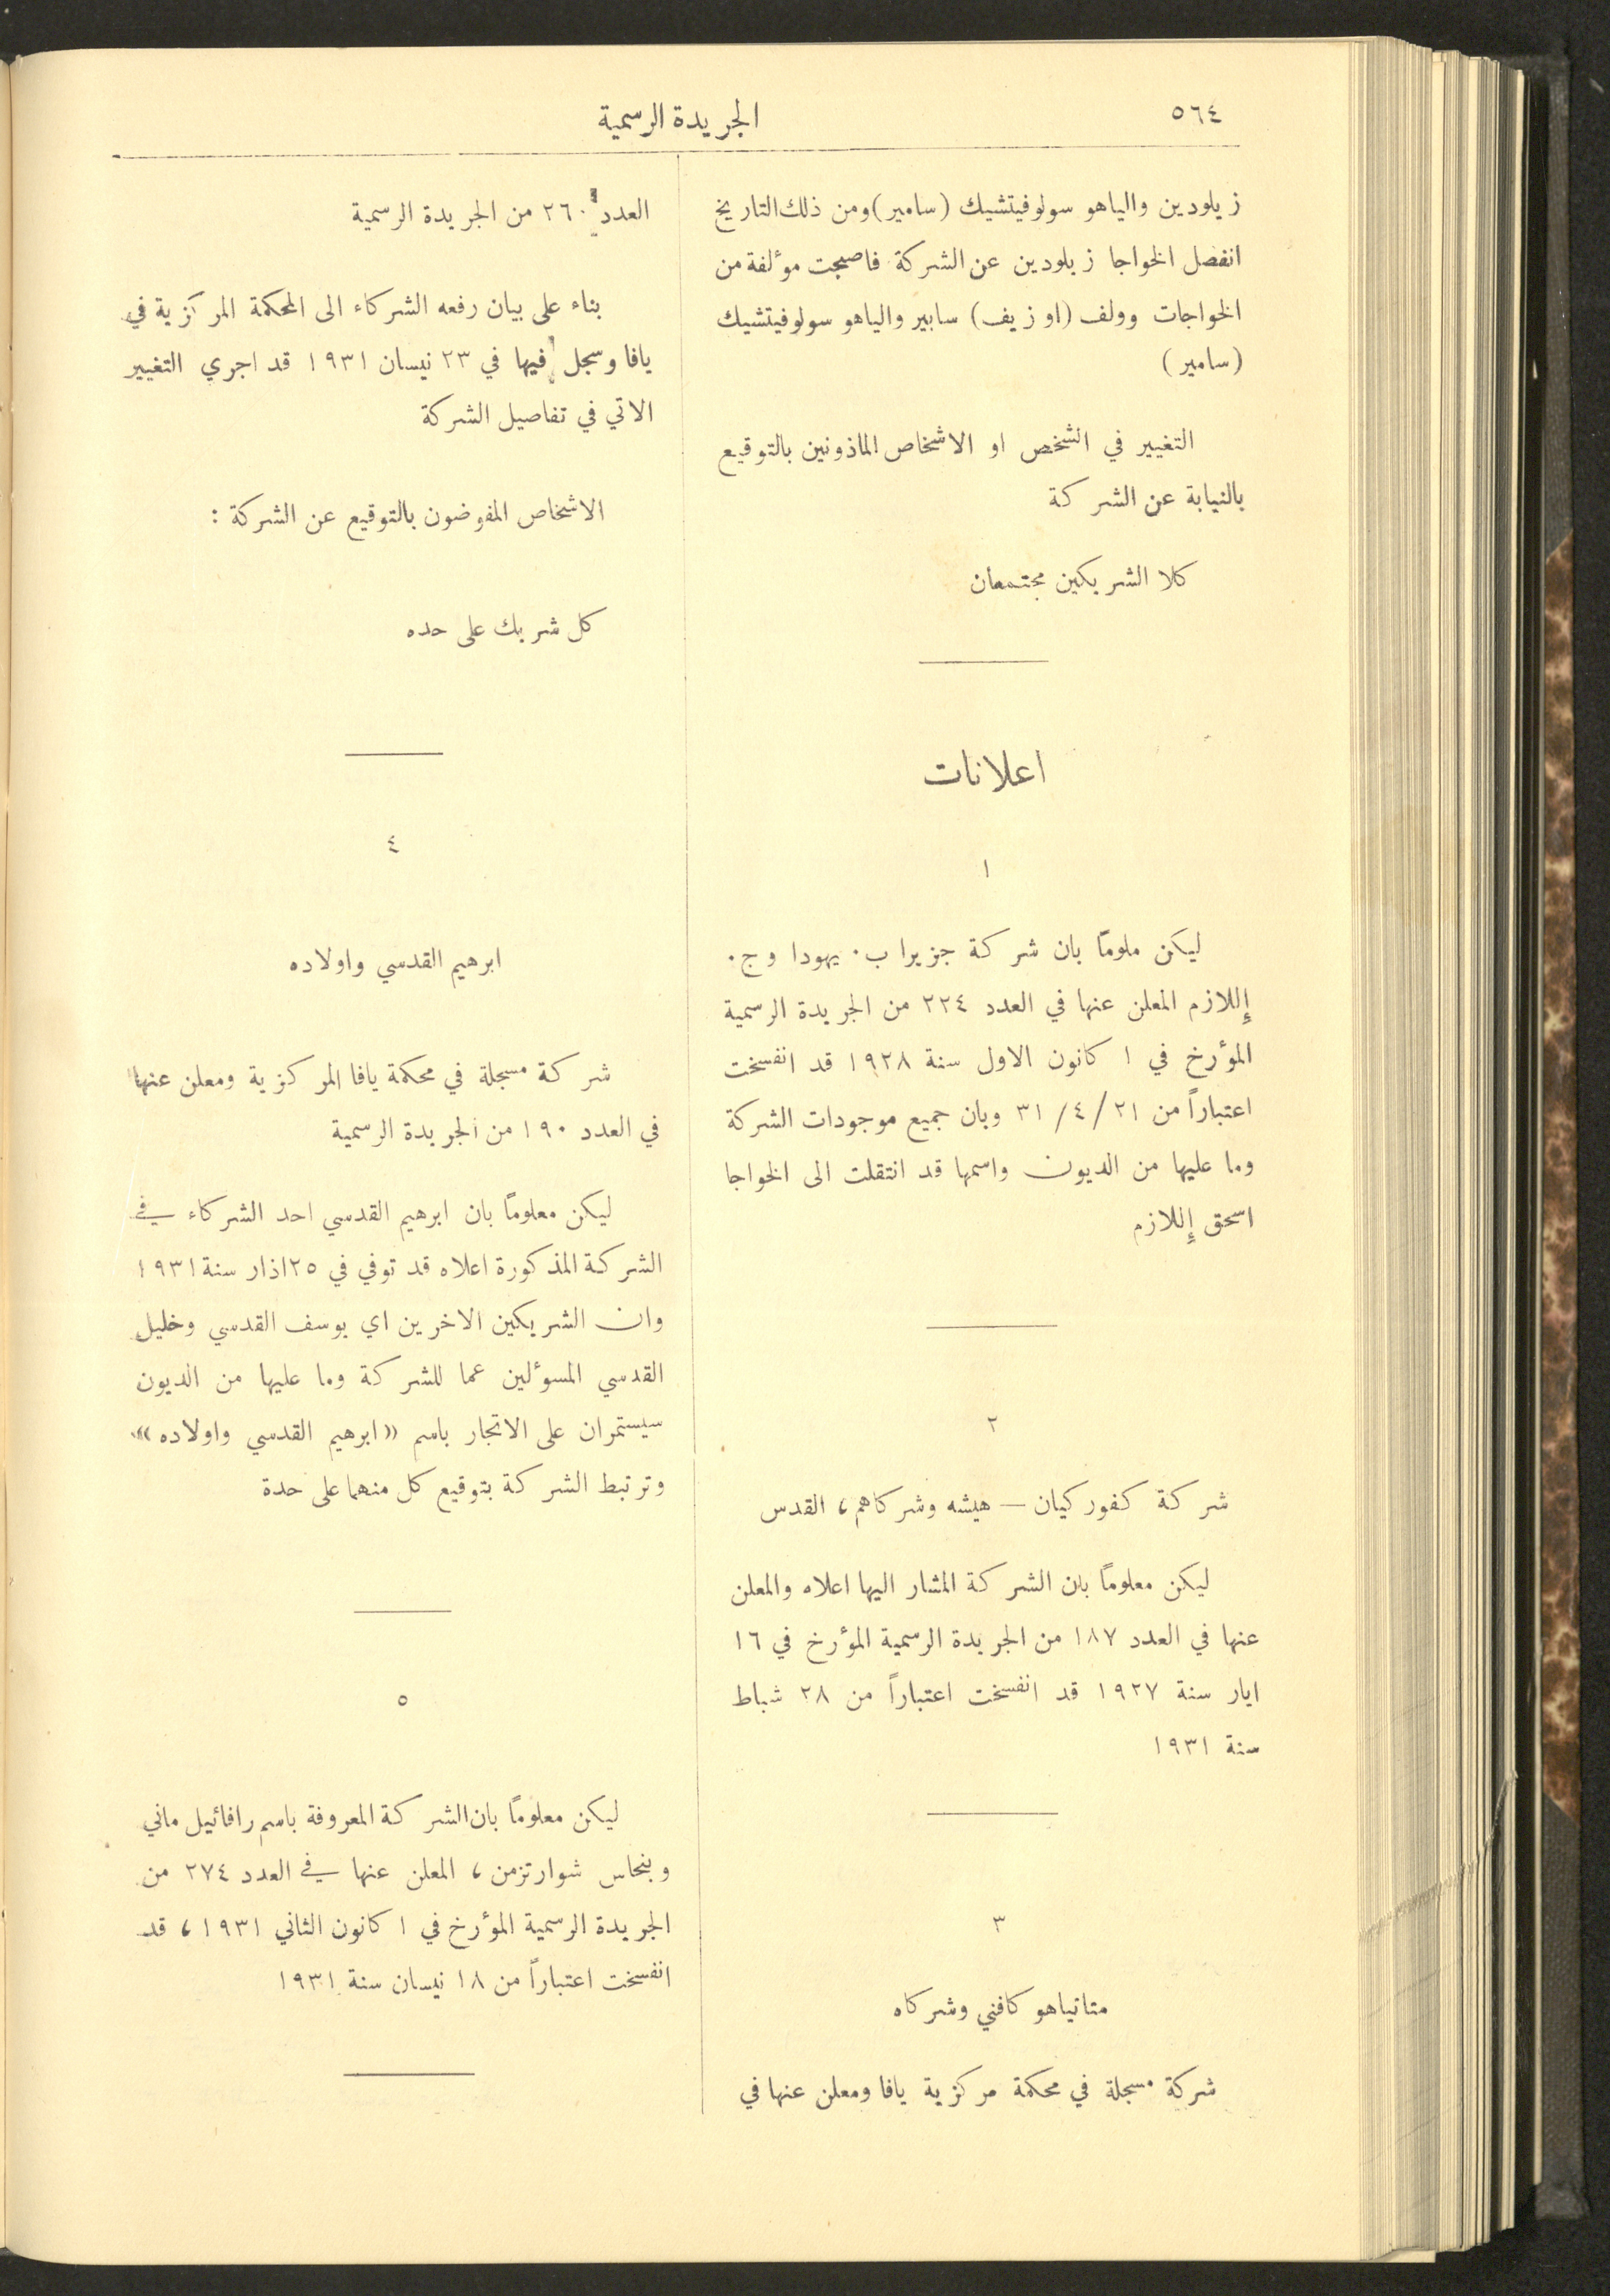 ٥٦٤
الجريدة الرسمية
زيلودين والياهو سولوفيتشيك (سامير) ومن ذلك التاريخ
انفصل الخواجا زيلودين عن الشركة فاصبحت موٴلفة من
الخواجات وولف (او زيف) سابير والياهو سولوفيتشيك
(سامير)
التغيير في الشخص او الاشخاص الماذونين بالتوقيع
بالنيابة عن الشركة
كلا الشريكين مجتمعان
اعلانات
١
ليكن ملومًا بان شركة جزيرا ب. يهودا و ج.
إللازم المعلن عنها في العدد ٢٢٤ من الجريدة الرسمية
الموٴرخ في ١ كانون الاول سنة ١٩٢٨ قد انفسخت
اعتباراً من ٢١/ ٤/ ٣١ وبان جميع موجودات الشركة
وما عليها من الديون واسمها قد انتقلت الى الخواجا
اسحق إللازم
٢
شركة كفوركيان — هيشه وشركاهم، القدس
ليكن معلومًا بان الشركة المشار اليها اعلاه والمعلن
عنها في العدد ١٨٧ من الجريدة الرسمية الموٴرخ في ١٦
ايار سنة ١٩٢٧ قد انفسخت اعتباراً من ٢٨ شباط
سنة ١٩٣١
٣
متاتياهو كافني وشركاه
شركة مسجلة في محكمة مركزية يافا ومعلن عنها في
العدد ٢٦٠ من الجريدة الرسمية
بناء على بيان رفعه الشركاء الى المحكمة المركزية في
يافا وسجل فيها في ٢٣ نيسان ١٩٣١ قد اجري التغيير
الاتي في تفاصيل الشركة
الاشخاص المفوضون بالتوقيع عن الشركة :
كل شريك على حده
٤
ابرهيم القدسي واولاده
شركة مسجلة في محكمة يافا المركزية ومعلن عنها
في العدد ١٩٠ من الجريدة الرسمية
ليكن معلومًا بان ابرهيم القدسي احد الشركاء في
الشركة المذكورة اعلاه قد توفي في ٢٥ اذار سنة ١٩٣١
وان الشريكين الاخرين اي يوسف القدسي وخليل
القدسي المسوٴلين عما للشركة وما عليها من الديون
سيستمران على الاتجار باسم «ابرهيم القدسي واولاده»
وترتبط الشركة بتوقيع كل منهما على حدة
٥
ليكن معلومًا بان الشركة المعروفة باسم رافائيل ماني
وبنحاس شوارتزمن، المعلن عنها في العدد ٢٧٤ من
الجريدة الرسمية الموٴرخ في ١ كانون الثاني ١٩٣١، قد
انفسخت اعتباراً من ١٨ نيسان سنة ١٩٣١